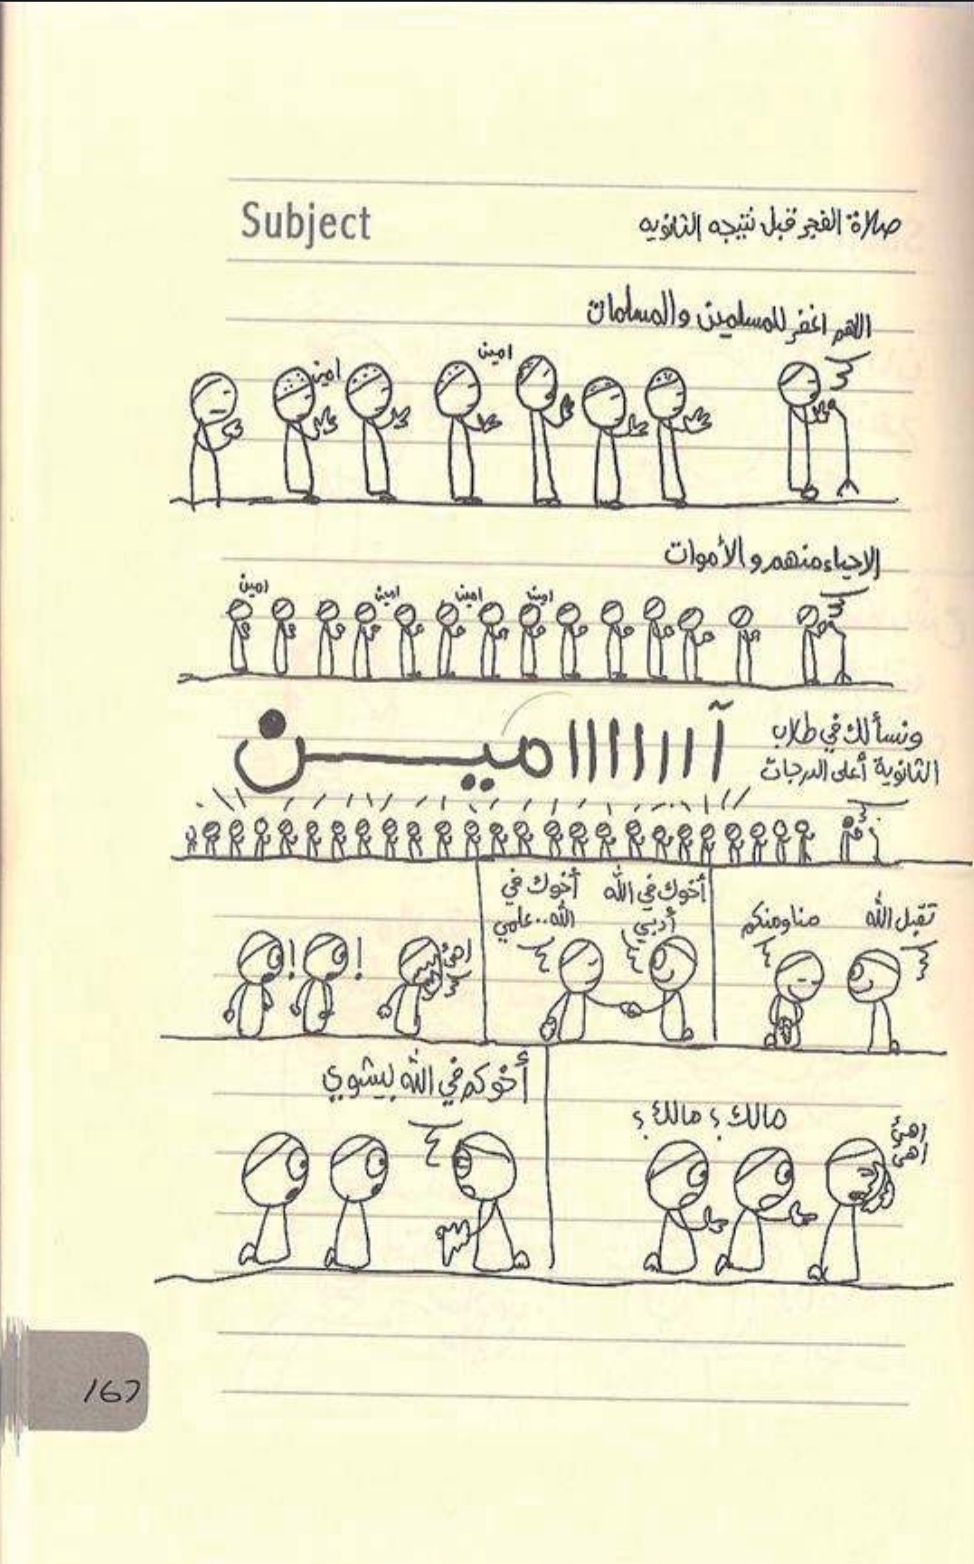 Subject
صلاة الفجر قبل نتيجه الثانويه
اللهم اغفر للمسلمين والمسلمات
امين
امين
الاحياء منهم و الأموات
امين
امين
امين
امين
ونسألك في طلاب
الثانوية أعلى الدرجات
آاااااااميـــن
تقبل الله
منا ومنكم
أخوك في الله
أدبي
أخوك في
الله.. علمي
اهئ
!
!
اهئ
اهئ
مالك؟ مالك؟
أخوكم في الله بيشوي
167